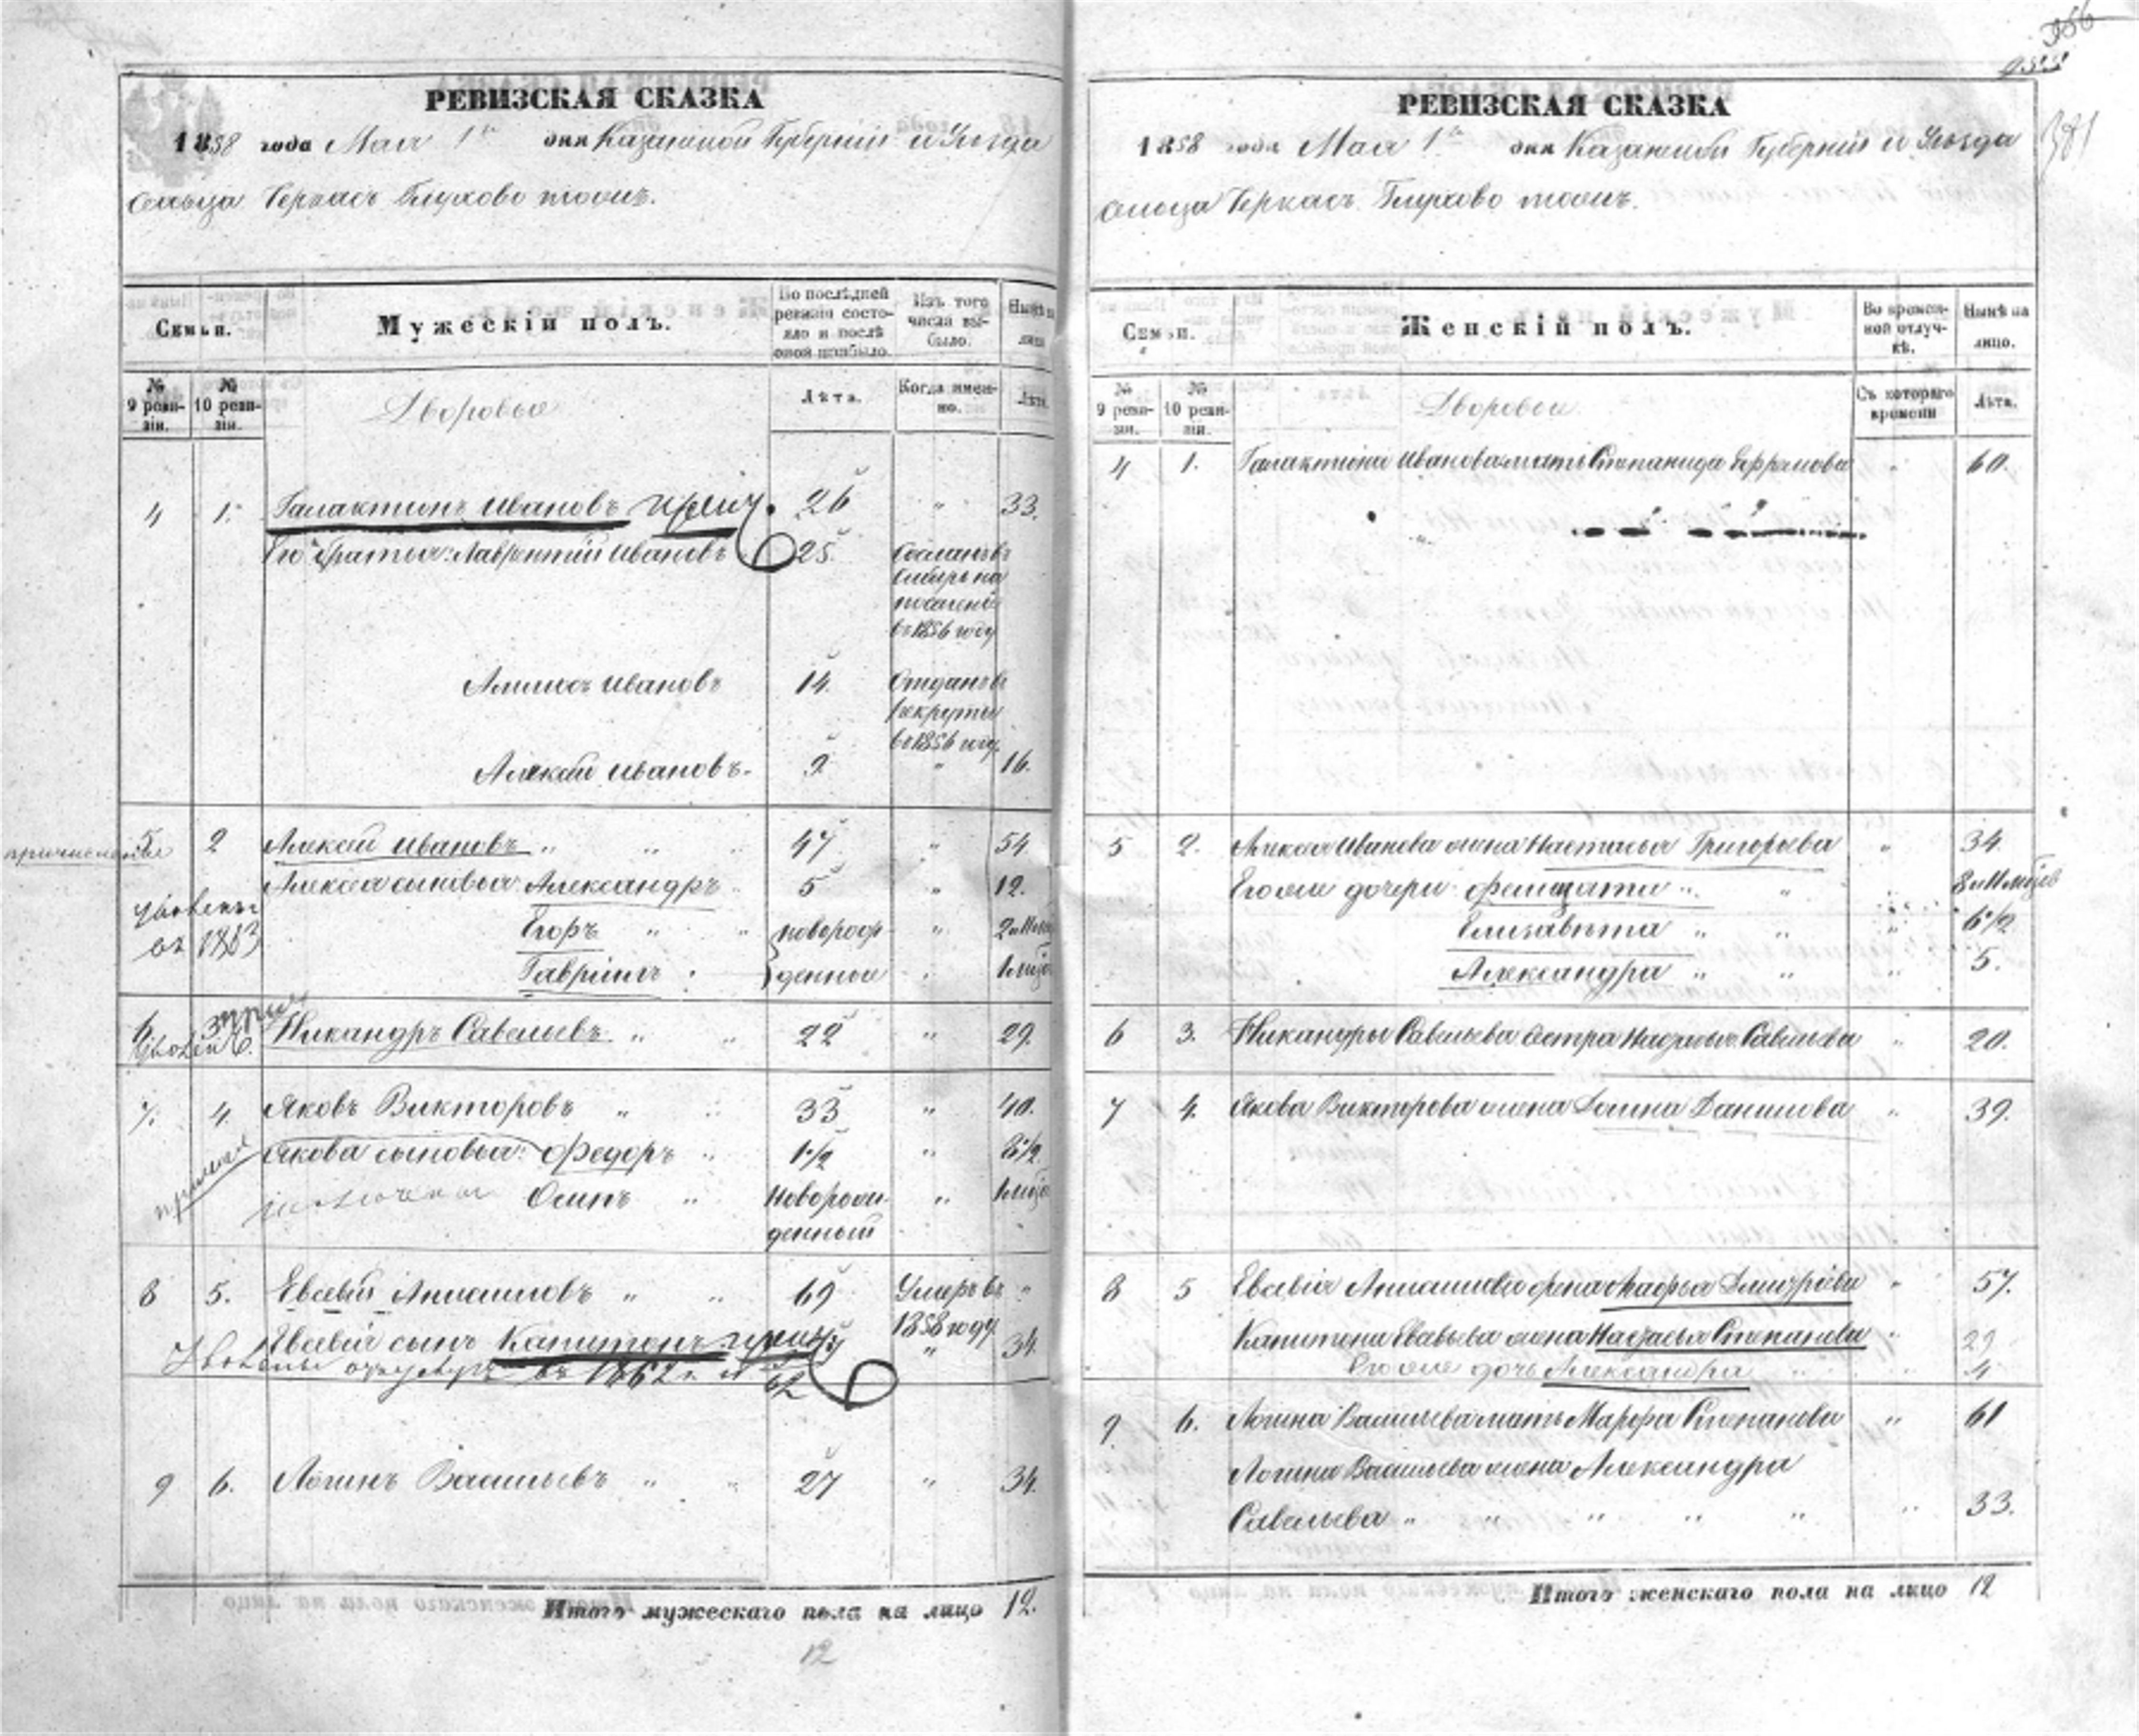 РЕВИЗСКАЯ СКАЗКА
1858 года Мая 1го дня Казанской Губернiи и Уѣзда
сельца Черкасъ Глухово тожъ.
Семьи.
Мужескiй полъ.
Во послѣдней ревизiи состояло и послѣ оной прибыло.
Изъ того числа выбыло.
Нынѣ на лицо
№ 9 ревизiи.
№ 10 ревизiи.
Дворовые
Лѣта.
Когда именно.
Лѣта.
4 1. Галактiонъ Ивановъ 26 " 33.
Его братья: Лаврентiй Ивановъ 25 Сосланъ въ
Сибирь на
поселенiе
въ 1856 году
Ивановъ 14. Отданъ въ
рекруты
въ 1856 году.
Алексѣй Ивановъ. 9 " 16.
5 2 Алексѣй Ивановъ " " " 47 " 54
Алексѣя сыновья: Александръ " 5 " 12.
въ 1863
Егоръ " " новорож- "
Гаврiилъ денные "
6 3 Никандръ Савельевъ " " 22 " 29.
7. 4. Яковъ Викторовъ " " 33 " 40.
Якова сыновья: Федоръ " 1 1/2 " 8 1/2
Осипъ " Новорож- "
денный
8 5. Евсевiй " " 69 Умеръ въ "
1858 году
Евсевiя сынъ Капитонъ " 34.
въ 1862 г. № 62
9 6. Логинъ Васильевъ " " 27 " 34.
Итого мужескаго пола на лицо 12.
12
356
381
РЕВИЗСКАЯ СКАЗКА
1858 года Мая 1го дня Казанской Губернiи и Уѣзда
сельца Черкасъ Глухово тожъ.
Семьи.
Женскiй полъ.
Во временной отлучкѣ.
Нынѣ на лицо.
№ 9 ревизiи.
№ 10 ревизiи.
Дворовые
Съ котораго времени
Лѣта.
4 1. Галактiона Иванова мать Степанида Ефремова " 60.
5 2. Алексѣя Иванова жена Настасья Григорьева " 34.
Его же дочери: Фелицата " "
Елизавѣта " " " 6 1/2
Александра " " " 5.
6 3. Никандры Савельева сестра Савельева " 20.
7 4. Якова Викторова жена Данилова " 39.
8 5 Евсевiя жена Дмитрiева " 57.
Капитона Евсевьева жена Настасья Степанова " 29
Его же дочь Александра " " 4
9. 6. Логина Васильева мать Марфа Степанова " 61
Логина Васильева жена Александра
Савельева " " " " " " 33.
Итого женскаго пола на лицо 12